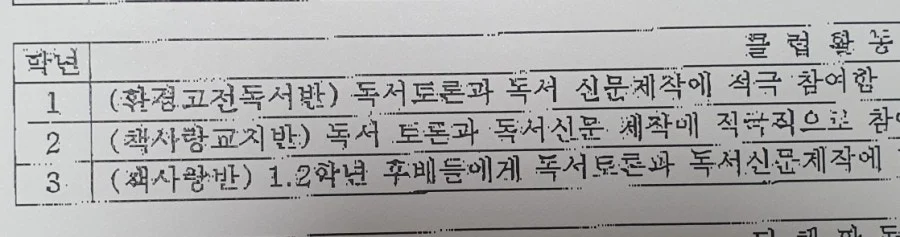 학년 클럽활동
1 (환경고전독서반) 독서토론과 독서 신문제작에 적극 참여함
2 (책사랑교지반) 독서 토론과 독서신문 제작에 적극적으로
3 (책사랑반) 1.2학년 후배들에게 독서토론과 독서신문제작에